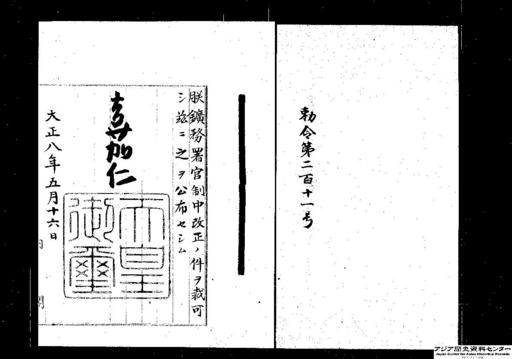 勅令第二百十一号
朕鑛務署官制中改正ノ件ヲ裁可
シ玆ニ之ヲ公布セシム
嘉仁
天皇
御璽
大正八年五月十六日
アジア歴史資料センター
Japan Center for Asian Historical Records